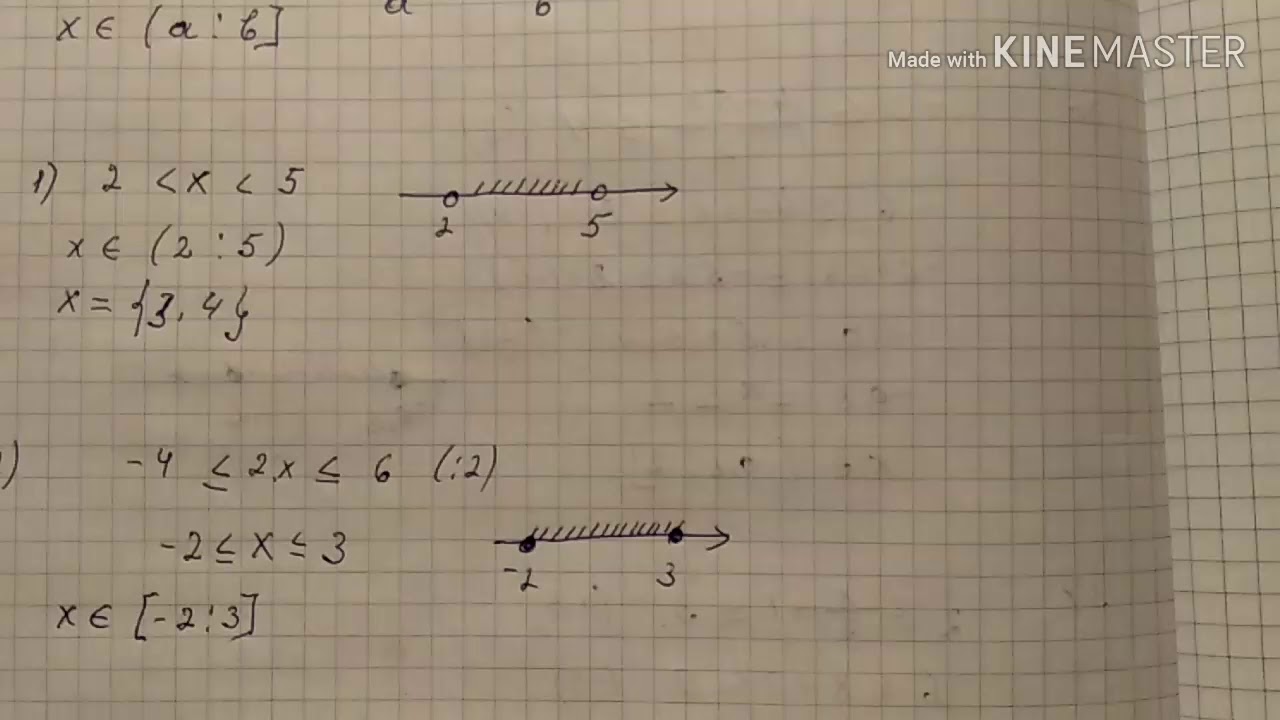 a b
x ∈ (a : b]
Made with KINEMASTER
1) 2 < x < 5
2 5
x ∈ (2 : 5)
x = {3, 4}
) -4 ≤ 2x ≤ 6 (:2)
-2 ≤ x ≤ 3
-2 3
x ∈ [-2 : 3]